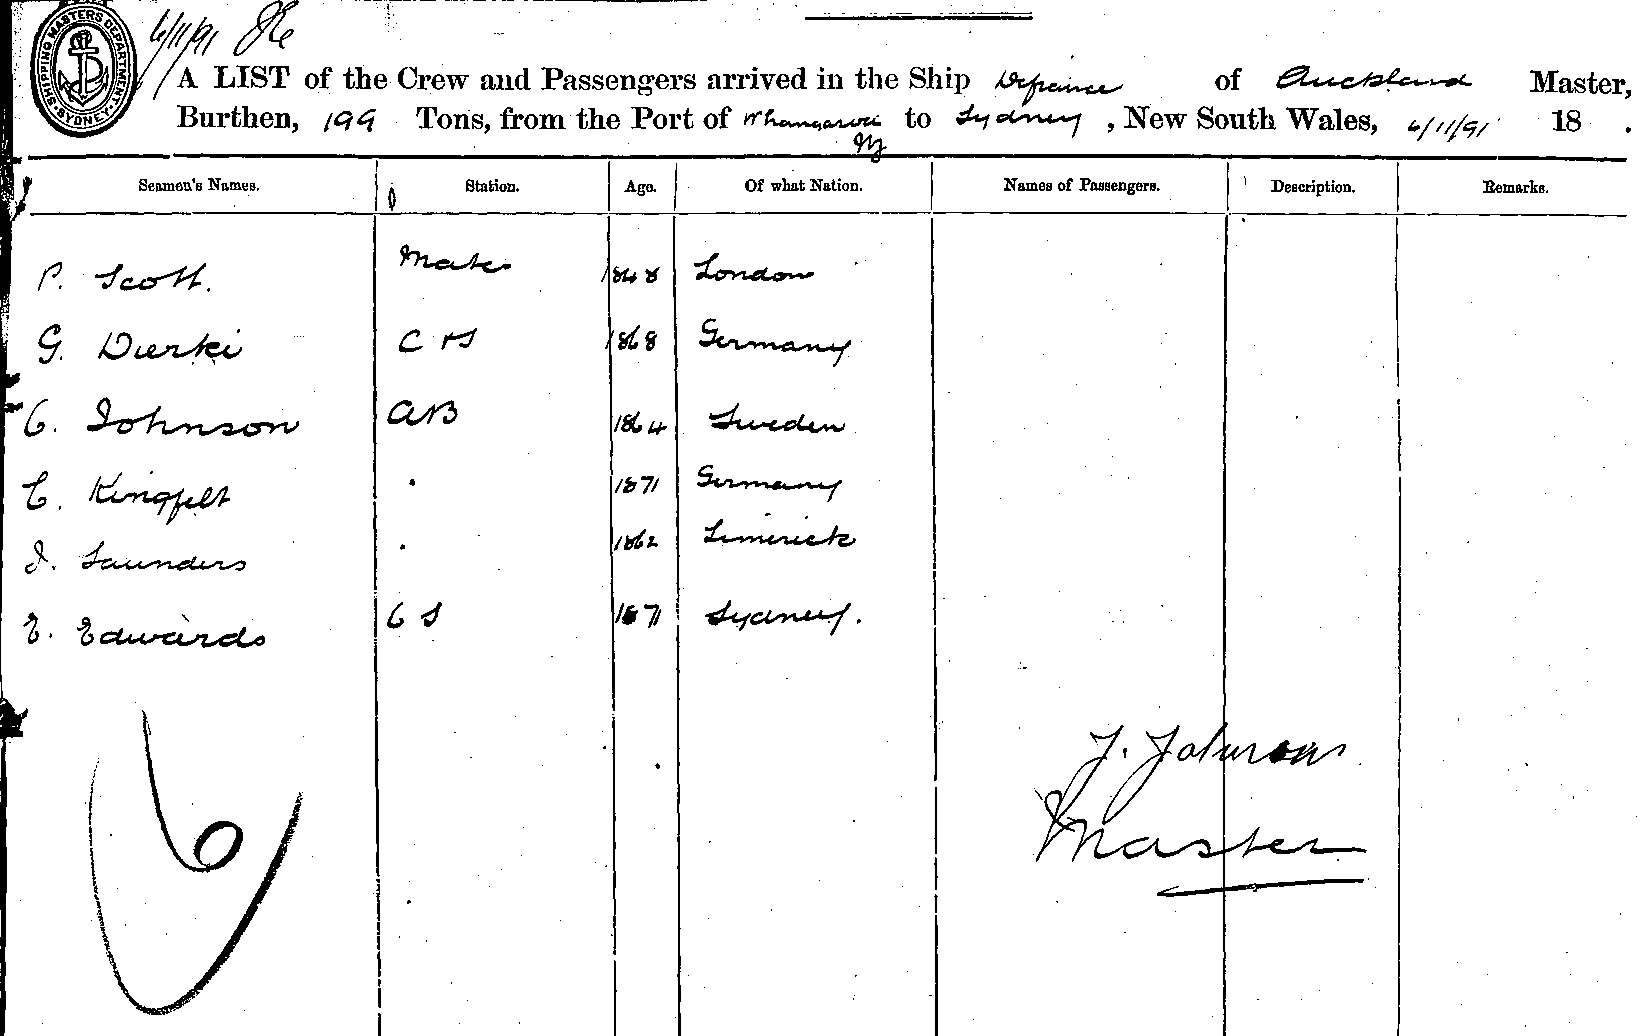 SHIPPING MASTERS DEPARTMENT SYDNEY
6/11/91
A LIST of the Crew and Passengers arrived in the Ship Defiance of Auckland Master,
Burthen, 199 Tons, from the Port of Whangaroa to Sydney, New South Wales, 6/11/91 18 .
NZ
Seamen's Names. Station. Age. Of what Nation. Names of Passengers. Description. Remarks.
P. Scott. Mate 1848 London
G. Dierki C & S 1868 Germany
C. Johnson AB 1864 Sweden
C. Kingfelt " 1871 Germany
J. Saunders " 1862 Limerick
E. Edwards CS 1871 Sydney.
J. Johnson
Master
6